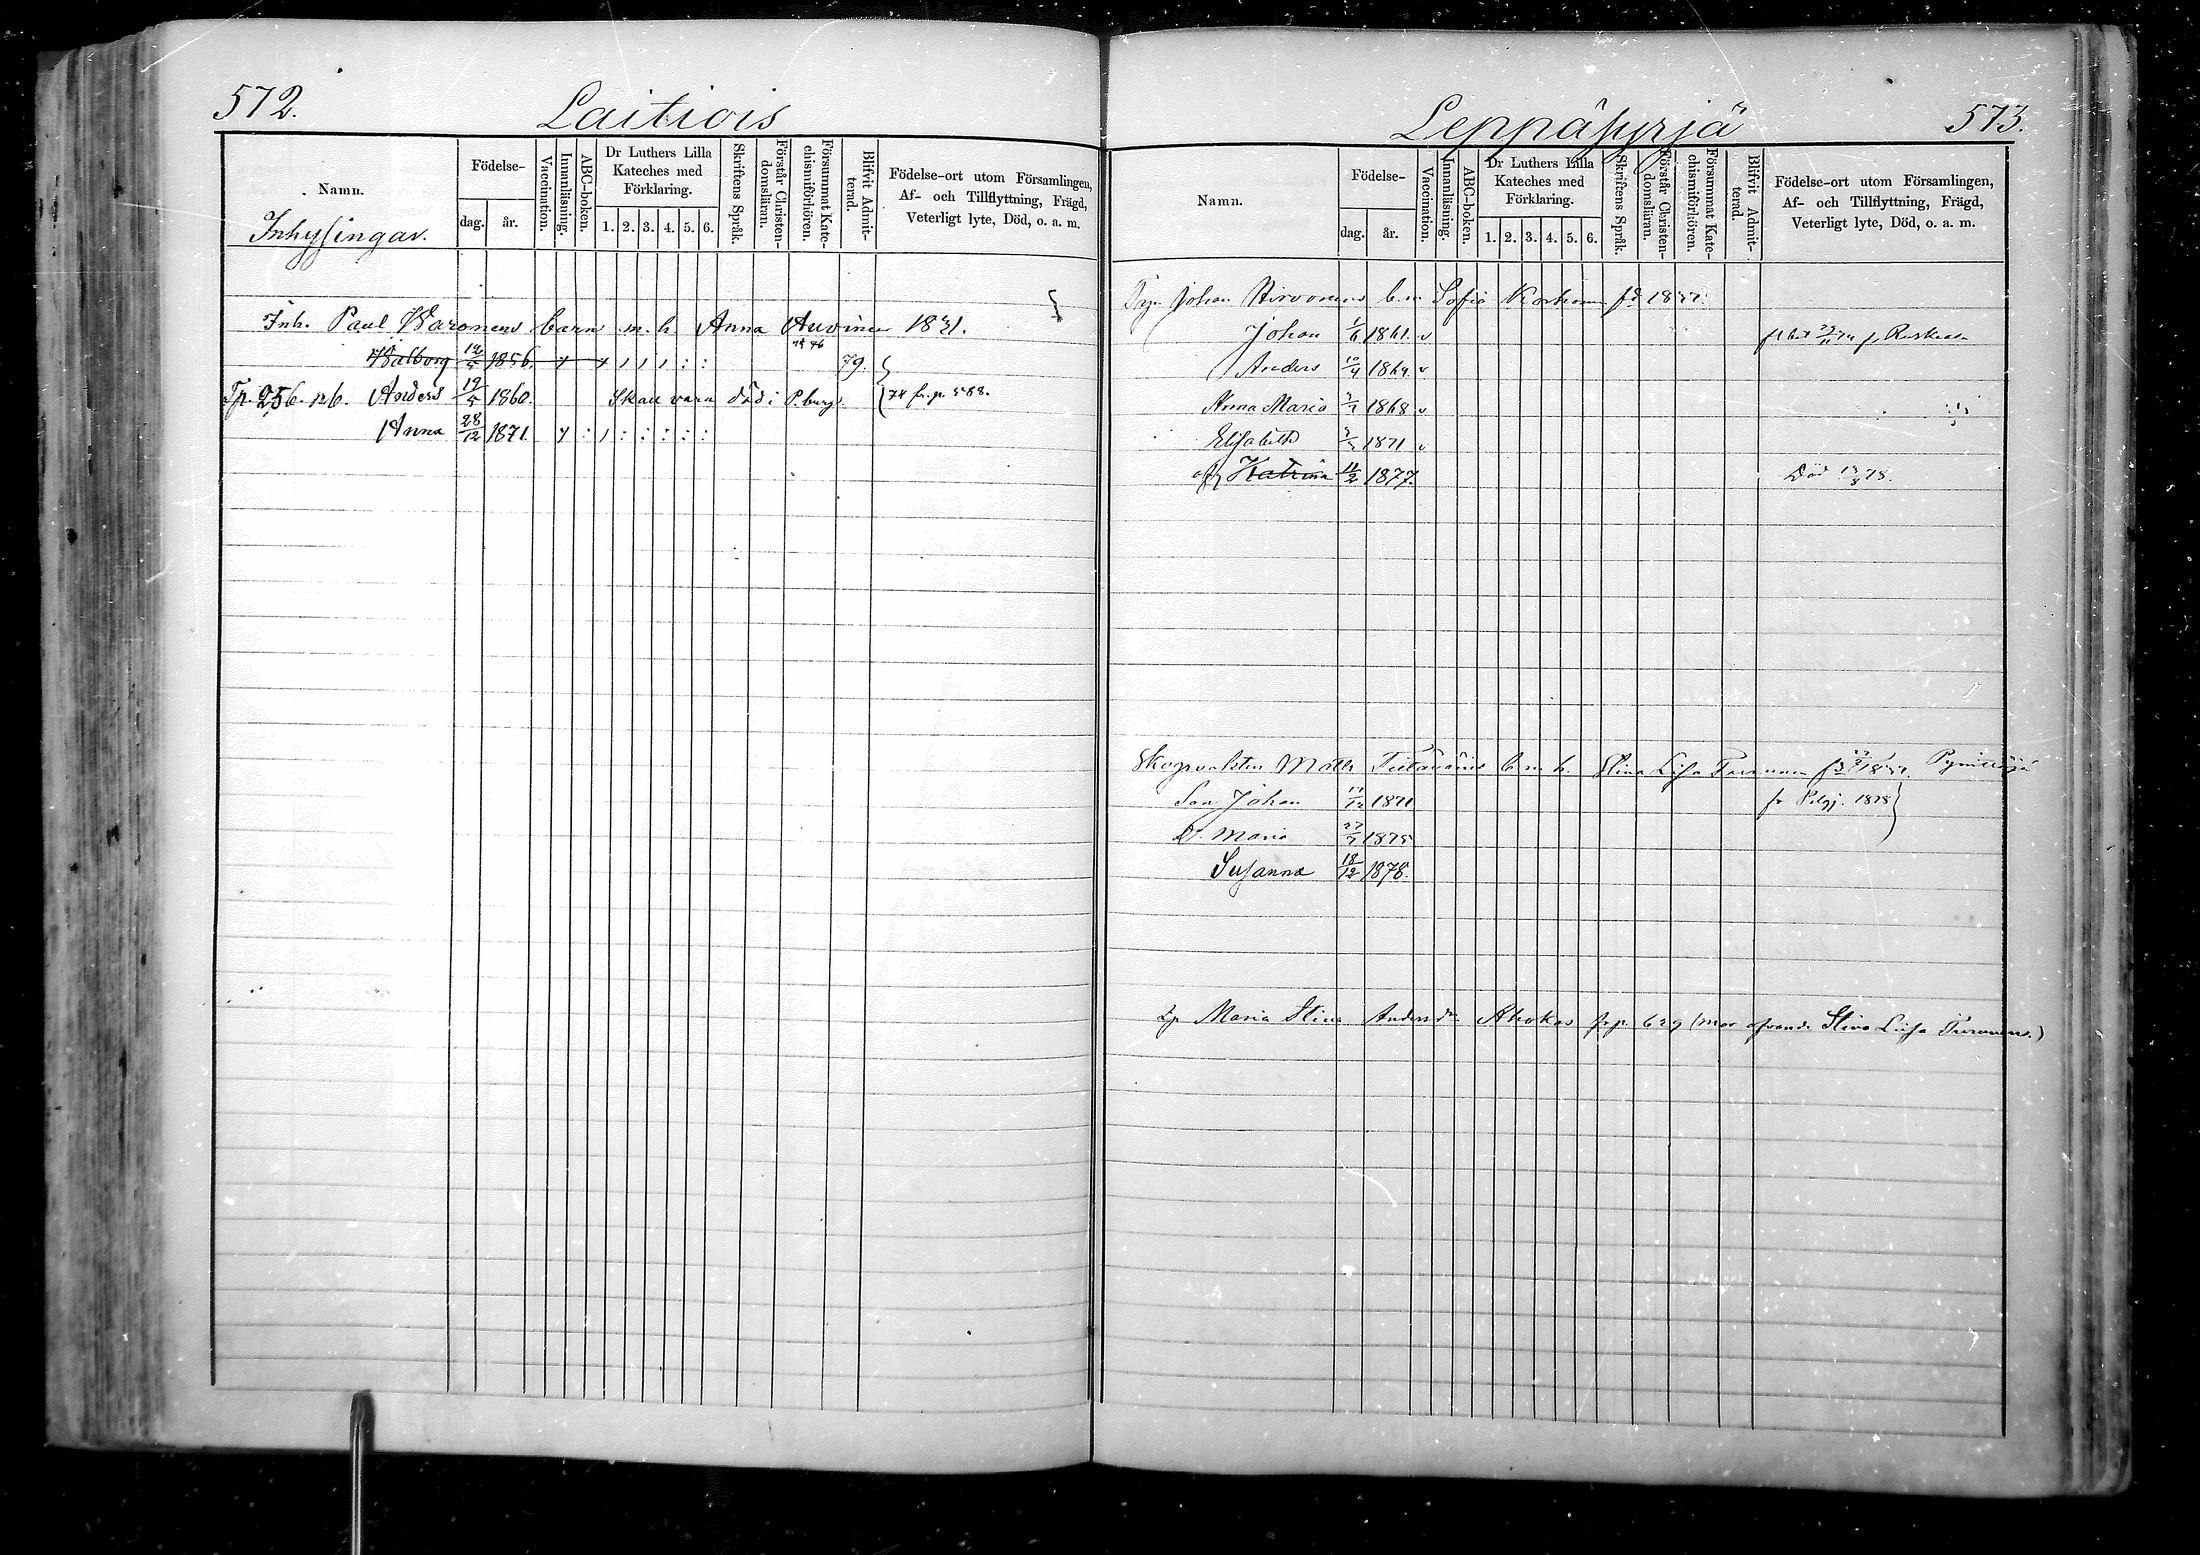 572.
Laitiois
Namn.
Inhysingar.
Födelse-
dag.
år.
Vaccination.
Innanläsning.
ABC-boken.
Dr Luthers Lilla
Kateches med
Förklaring.
1. 2. 3. 4. 5. 6.
Skriftens Språk.
Förstår Christen-
domsläran.
Försummat Kate-
chismiförhören.
Blifvit Admit-
terad.
Födelse-ort utom Församlingen,
Af- och Tillflyttning, Frägd,
Veterligt lyte, Död, o. a. m.
Inh. Paul Waronens barn m. h. Anna Auvinen 1831.
Walborg 12/5 1856. 79.
Tp. 256. n6. Anders 19/5 1860. Skall vara död i P.burg. 74 fr. p. 588.
Anna 28/12 1871.
Leppäsyrjä
573.
Namn.
Födelse-
dag.
år.
Vaccination.
Innanläsning.
ABC-boken.
Dr Luthers Lilla
Kateches med
Förklaring.
1. 2. 3. 4. 5. 6.
Skriftens Språk.
Förstår Christen-
domsläran.
Försummat Kate-
chismiförhören.
Blifvit Admit-
terad.
Födelse-ort utom Församlingen,
Af- och Tillflyttning, Frägd,
Veterligt lyte, Död, o. a. m.
Johan Hirvonens b. m. Sofia Korhonen fd
Johan 1/6 1861. v
Anders 10/4 1864. v
Anna Maria 1868 v
Elisabeth 1871 v
Katrina 11/2 1877. Död 13/8 78.
Matts b. m. h. Stina Lisa Turunen
Son Johan 1871 fr 1878
D. Maria 27/7 1875
Susanna 18/12 1878.
Maria Stina Andersdr Ahokas fr p. 629 (mor Stina Lisa Turunens.)